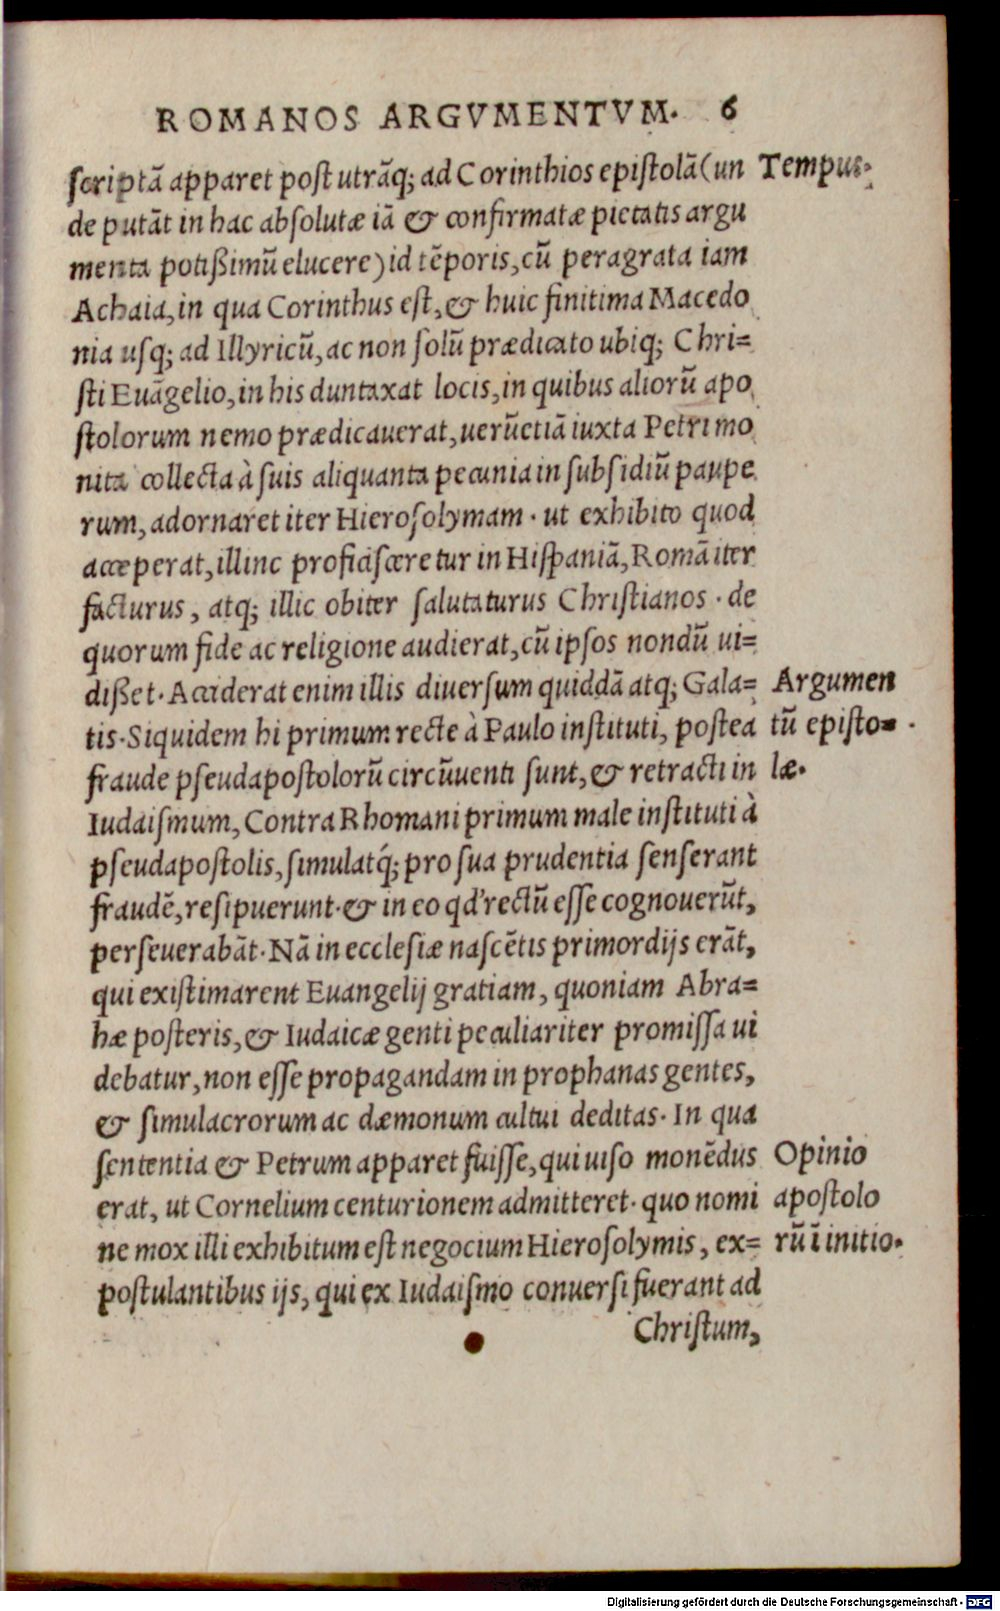 ROMANOS ARGVMENTVM. 6
scriptā apparet post utrāq; ad Corinthios epistolā (un
Tempus.
de putāt in hac absolutæ iā & confirmatæ pietatis argu
menta potißimū elucere) id tēporis, cū peragrata iam
Achaia, in qua Corinthus est, & huic finitima Macedo
nia usq; ad Illyricū, ac non solū prædicato ubiq; Chri=
sti Euāgelio, in his duntaxat locis, in quibus aliorū apo
stolorum nemo prædicauerat, uerūetiā iuxta Petri mo
nita collecta à suis aliquanta pecunia in subsidiū paupe
rum, adornaret iter Hierosolymam. ut exhibito quod
acceperat, illinc proficisceretur in Hispaniā, Romā iter
facturus, atq; illic obiter salutaturus Christianos. de
quorum fide ac religione audierat, cū ipsos nondū ui=
dißet. Acciderat enim illis diuersum quiddā atq; Gala=
Argumen
tis. Siquidem hi primum recte à Paulo instituti, postea
tū episto=
fraude pseudapostolorū circūuenti sunt, & retracti in
læ.
Iudaismum, Contra Rhomani primum male instituti à
pseudapostolis, simulatq́; pro sua prudentia senserant
fraudē, resipuerunt. & in eo qd' rectū esse cognouerūt,
perseuerabāt. Nā in ecclesiæ nascētis primordijs erāt,
qui existimarent Euangelij gratiam, quoniam Abra=
hæ posteris, & Iudaicæ genti peculiariter promissa ui
debatur, non esse propagandam in prophanas gentes,
& simulacrorum ac dæmonum cultui deditas. In qua
sententia & Petrum apparet fuisse, qui uiso monēdus
Opinio
erat, ut Cornelium centurionem admitteret. quo nomi
apostolo
ne mox illi exhibitum est negocium Hierosolymis, ex=
rū ī initio.
postulantibus ijs, qui ex Iudaismo conuersi fuerant ad
Christum,
Digitalisierung gefördert durch die Deutsche Forschungsgemeinschaft - DFG